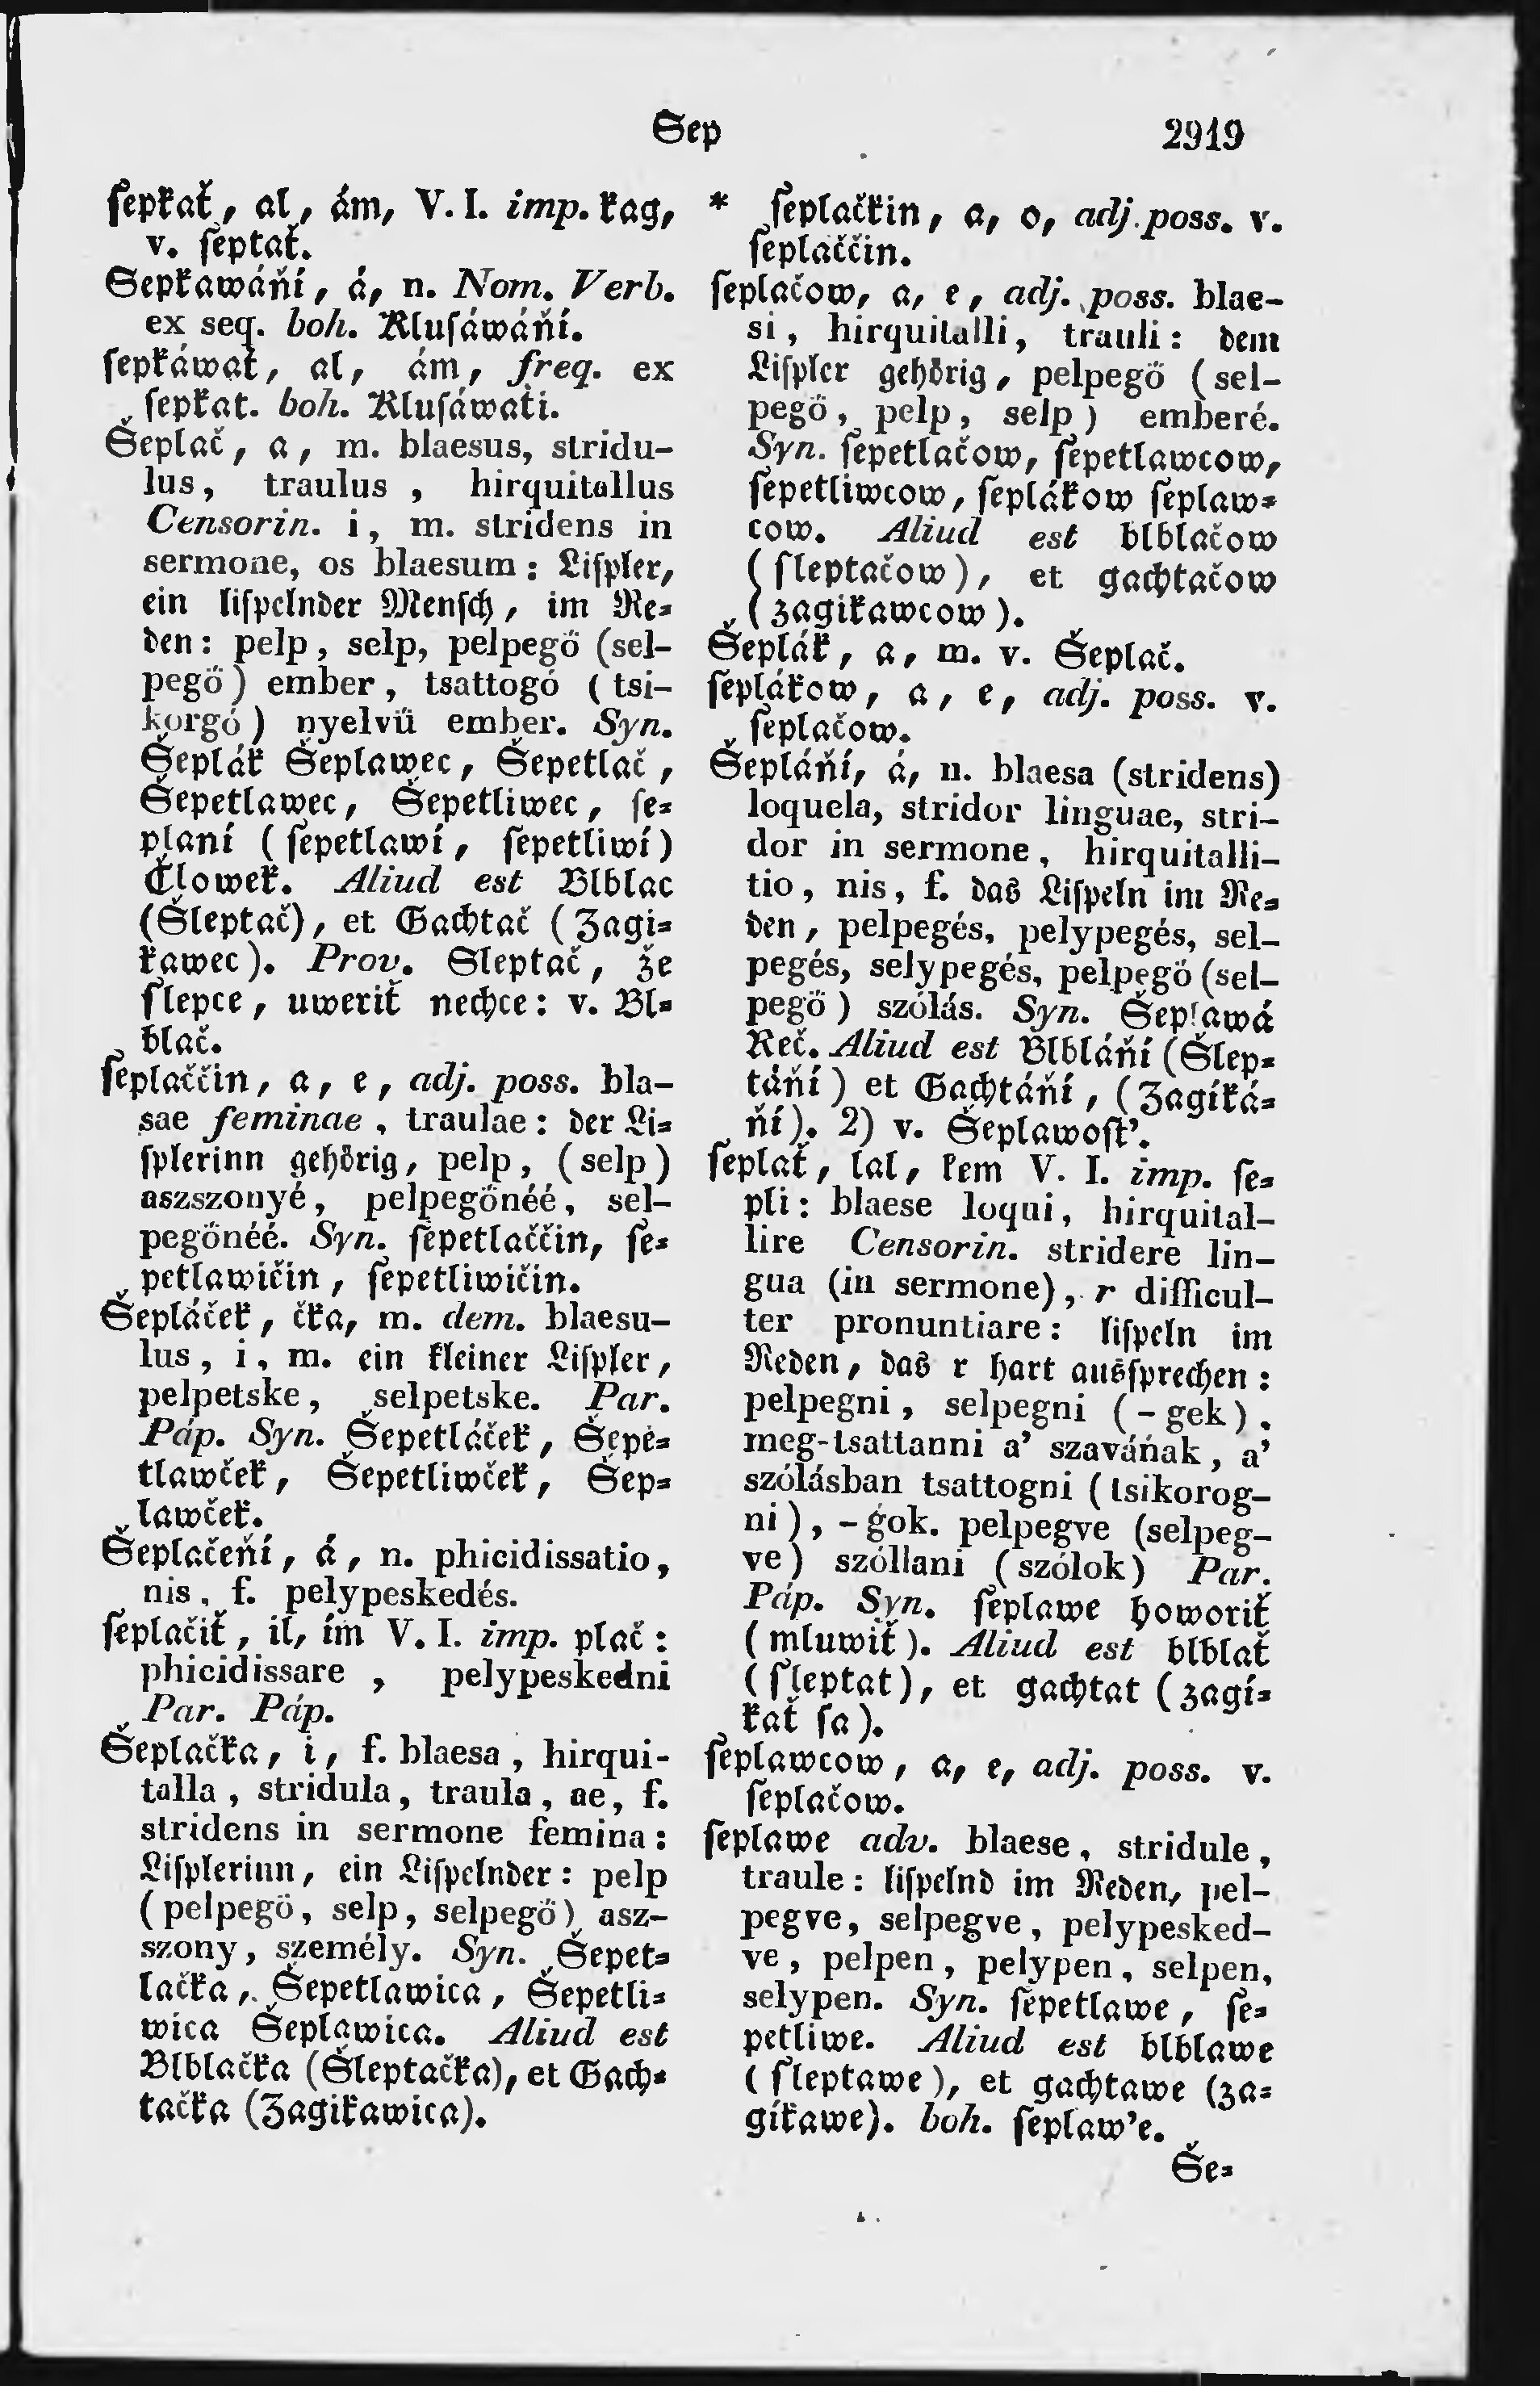 Sep
2919
ſepkať, al, ám, V. I. imp. kag,
v. ſeptať.
Sepkawáňí, á, n. Nom. Verb.
ex seq. boh. Klusáwáňí.
ſepkáwať, al, ám, freq. ex
ſepkat. boh. Klusáwati.
Šeplač, a, m. blaesus, stridu-
lus, traulus, hirquitallus
Censorin. i, m. stridens in
sermone, os blaesum: Liſpler,
ein liſpelnder Menſch, im Re-
den: pelp, selp, pelpegő (sel-
pegő) ember, tsattogó (tsi-
korgó) nyelvü ember. Syn.
Šeplák Šeplawec, Šepetlač,
Šepetlawec, Šepetliwec, ſe-
planí (ſepetlawí, ſepetliwí)
Člowek. Aliud est Blblac
(Šleptač), et Gachtač (Zagi-
kawec). Prov. Sleptač, že
ſlepce, uweriť nechce: v. Bl-
blač.
ſeplaččin, a, e, adj. poss. bla-
sae feminae, traulae: der Li-
ſplerinn gehörig, pelp, (selp)
aszszonyé, pelpegőnéé, sel-
pegőnéé. Syn. ſepetlaččin, ſe-
petlawičin, ſepetliwičin.
Šepláček, čka, m. dem. blaesu-
lus, i, m. ein kleiner Liſpler,
pelpetske, selpetske. Par.
Páp. Syn. Šepetláček, Šepe-
tlawček, Šepetliwček, Šep-
lawček.
Šeplačeňí, á, n. phicidissatio,
nis, f. pelypeskedés.
ſeplačiť, il, ím V. I. imp. plač:
phicidissare, pelypeskedni
Par. Páp.
Šeplačka, i, f. blaesa, hirqui-
talla, stridula, traula, ae, f.
stridens in sermone femina:
Liſplerinn, ein Liſpelnder: pelp
(pelpegö, selp, selpegő) asz-
szony, személy. Syn. Šepet-
lačka, Šepetlawica, Šepetli-
wica Šeplawica. Aliud est
Blblačka (Šleptačka), et Gach-
tačka (Zagikawica).
* ſeplačkin, a, o, adj. poss. v.
ſeplaččin.
ſeplačow, a, e, adj. poss. blae-
si, hirquitalli, trauli: dem
Liſpler gehörig, pelpegö (sel-
pegő, pelp, selp) emberé.
Syn. ſepetlačow, ſepetlawcow,
ſepetliwcow, ſeplákow ſeplaw-
cow. Aliud est blblačow
(ſleptačow), et gachtačow
(zagikawcow).
Šeplák, a, m. v. Šeplač.
ſeplákow, a, e, adj. poss. v.
ſeplačow.
Šepláňí, á, n. blaesa (stridens)
loquela, stridor linguae, stri-
dor in sermone, hirquitalli-
tio, nis, f. das Liſpeln im Re-
den, pelpegés, pelypegés, sel-
pegés, selypegés, pelpegő (sel-
pegő) szólás. Syn. Šeplawá
Reč. Aliud est Blbláňí (Šlep-
táňí) et Gachtáňí, (Zagíká-
ňí). 2) v. Šeplawoſt'.
ſeplať, lal, lem V. I. imp. ſe-
pli: blaese loqui, hirquital-
lire Censorin. stridere lin-
gua (in sermone), r difficul-
ter pronuntiare: liſpeln im
Reden, das r hart ausſprechen:
pelpegni, selpegni (-gek),
meg-tsattanni a' szavának, a'
szólásban tsattogni (tsikorog-
ni), -gok. pelpegve (selpeg-
ve) szóllani (szólok) Par.
Páp. Syn. ſeplawe howoriť
(mluwiť). Aliud est blblať
(ſleptat), et gachtat (zagí-
kať ſa).
ſeplawcow, a, e, adj. poss. v.
ſeplačow.
ſeplawe adv. blaese, stridule,
traule: liſpelnd im Reden, pel-
pegve, selpegve, pelypesked-
ve, pelpen, pelypen, selpen,
selypen. Syn. ſepetlawe, ſe-
petliwe. Aliud est blblawe
(ſleptawe), et gachtawe (za-
gíkawe). boh. ſeplaw'e.
Še-